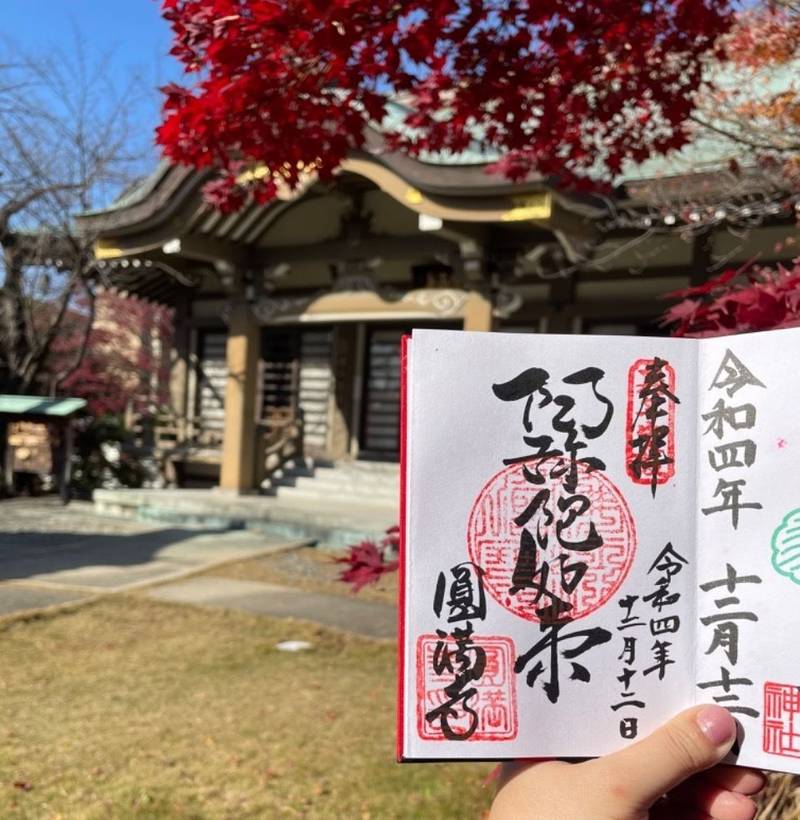 令和四年 十二月十二
神社
奉拝
令和四年
十二月十二日
阿弥陀如来
圓満寺